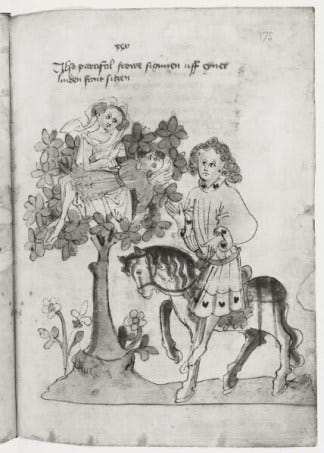 xxv
Also parcifal frowe sigunen uff eyner
linden fant sitzen